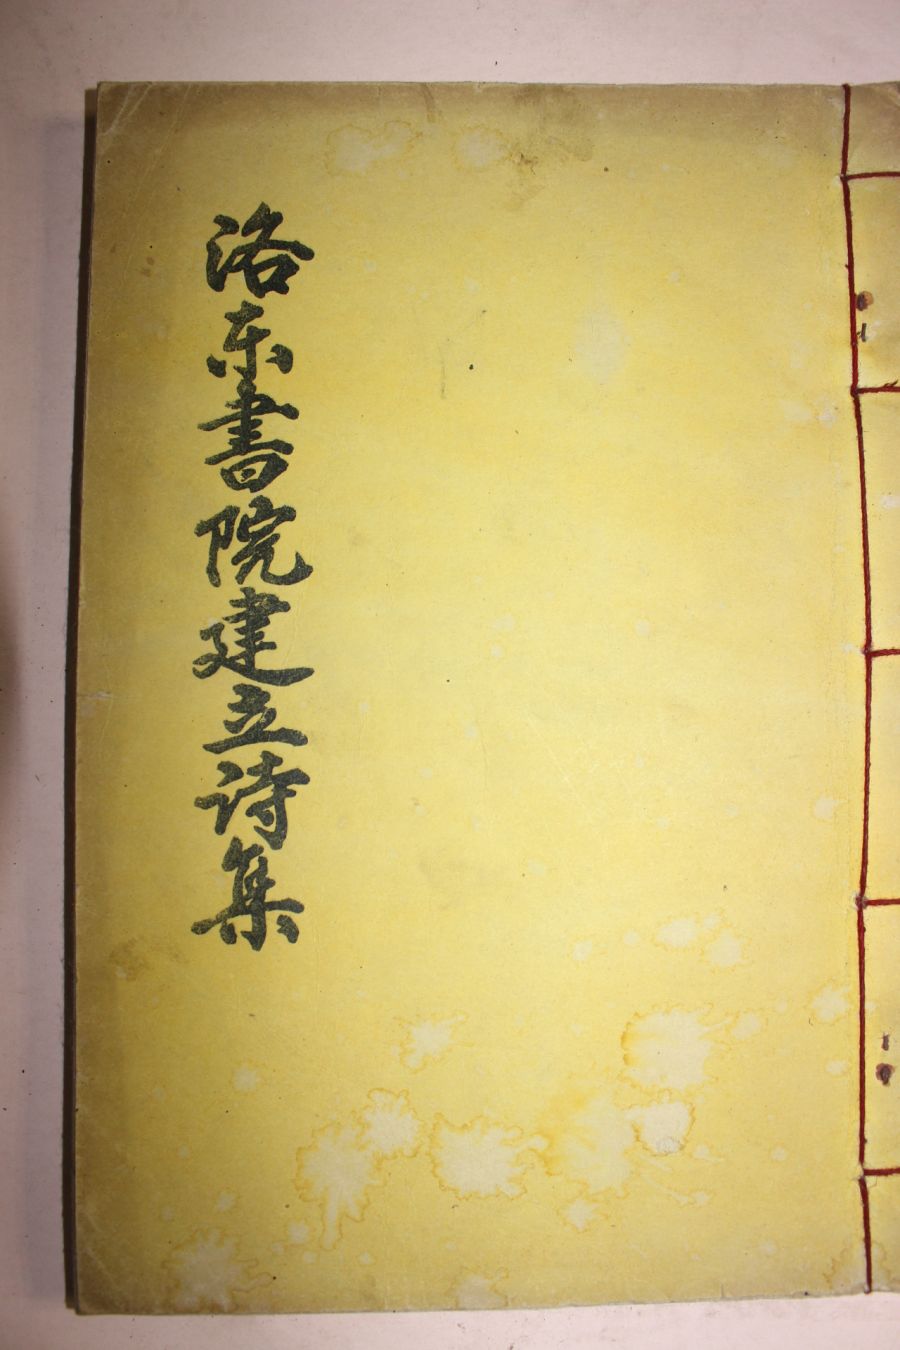 洛东書院建立詩集